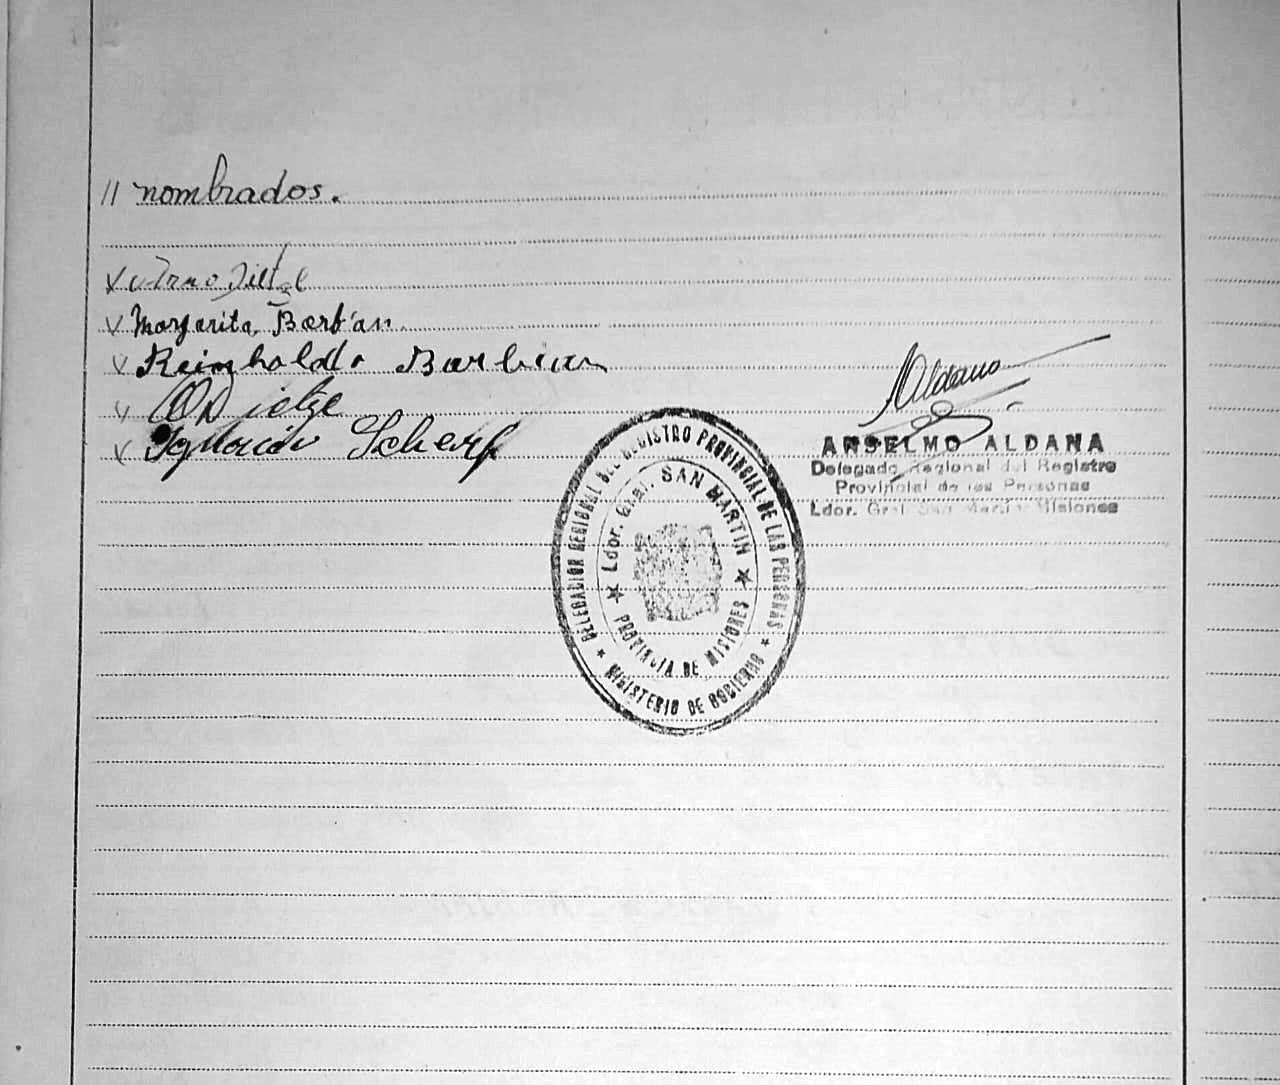 // nombrados.
Arno Dietze
Margarita Barbian
Reinholdo Barbian
O D ietze
Ignacio Scherf
Aldana
ANSELMO ALDANA
Delegado Regional del Registro
Provincial de las Personas
Ldor. Gral San Martín Misiones
DELEGACION REGIONAL DEL REGISTRO PROVINCIAL DE LAS PERSONAS
★ MINISTERIO DE GOBIERNO ★
★ Ldor. Gral. SAN MARTIN ★
PROVINCIA DE MISIONES